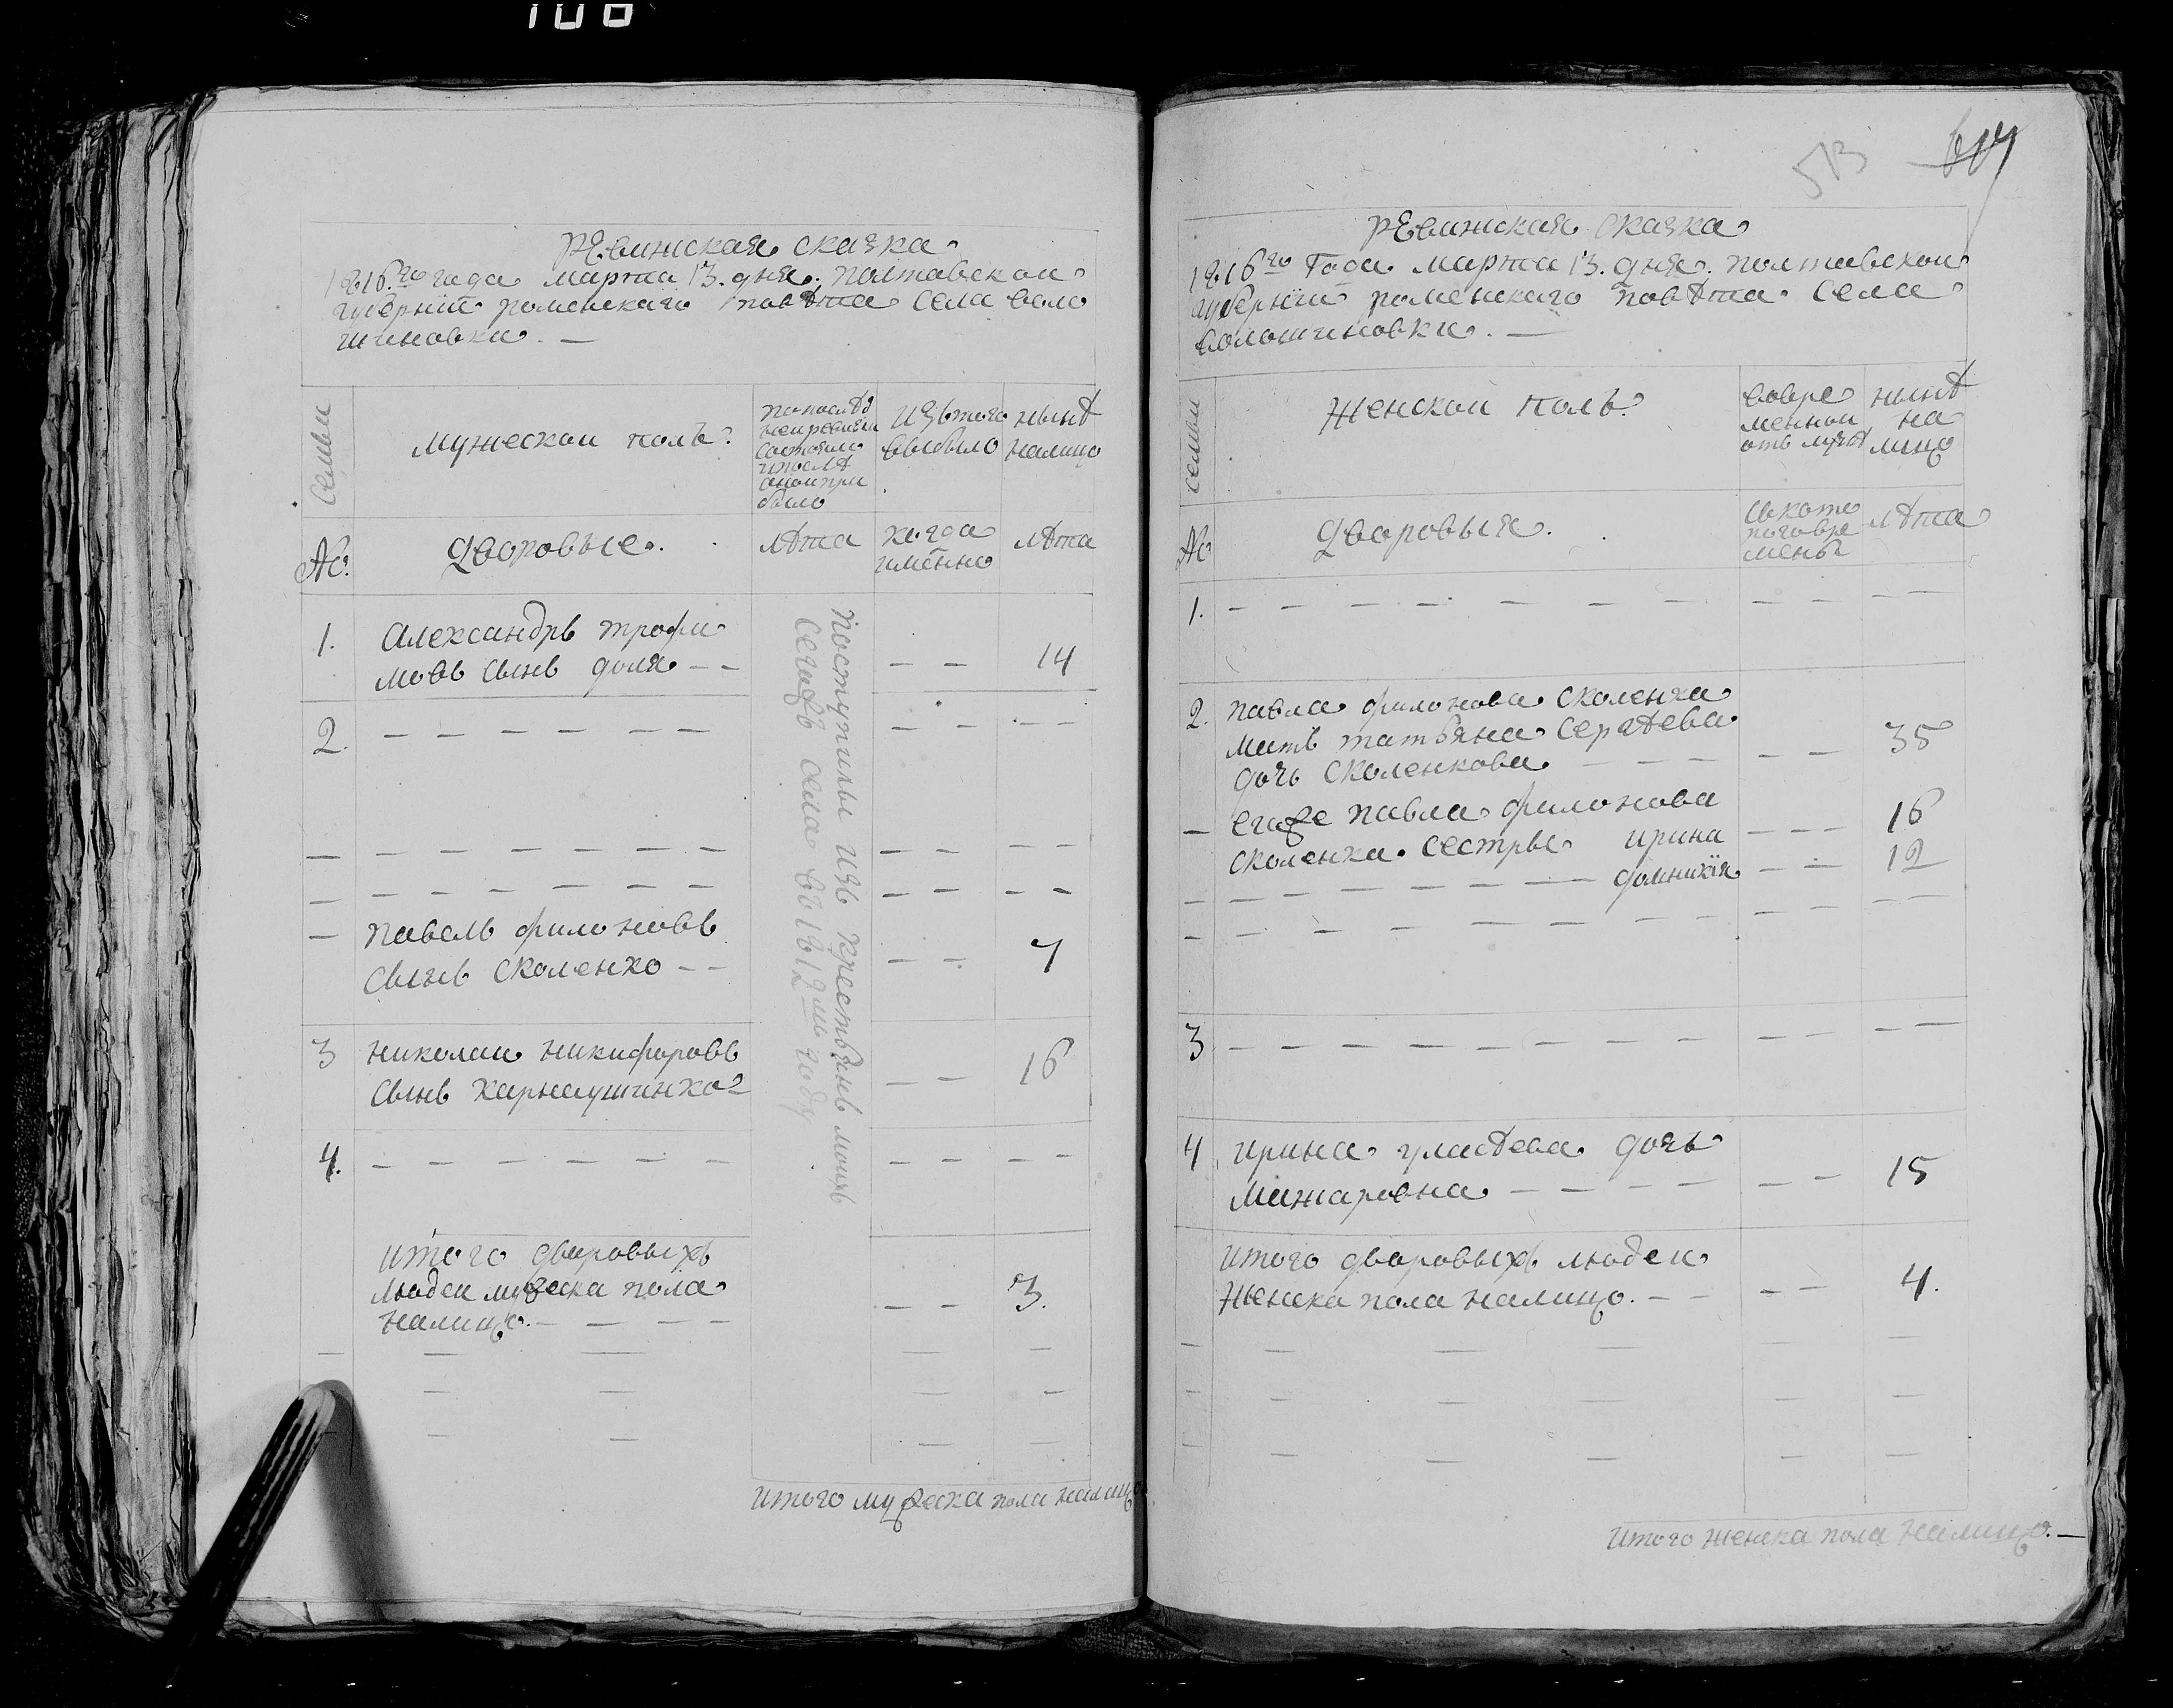 108
Ревижская сказка
1816.го года марта 13. дня. полтавской
губернїи роменскаго повѣта села воло
шиновки. —
Семьи
мужескои полъ.
по послѣд
ней ревизїи
состояло
и послѣ
оной при
было
изътого
выбыло
нынѣ
налицо
№.
Дворовые.
лѣта
когда
имѣнно
лѣта
1.
Александръ трофи
мовъ сынъ доля — —
— —
14
Поступилы изъ крестьянъ моихъ
сегожъ села въ 1812.мъ году
2.
— — — — — —
— павелъ филоновъ
сынъ Сколенко — —
— —
7
3
николаи никифоровъ
сынъ Карнаушинко
— —
16
4.
— — — — — —
итого дворовыхъ
людеи мужеска пола
налицо. — — — —
— —
3.
итого мужеска пола налицо
513
617
Ревижская Сказка
1816го Года марта 13. дня. полтавскои
губернїи роменскаго повѣта Села
волошиновки. —
семьи
Женскои полъ.
вовре
меннои
отлучкѣ
нынѣ
на
лицо
№
Дворовыя.
съкоте
поговре
мены
лѣта
1.
— — — — — — —
2.
павла филонова Сколенка
мать татьяна Сергѣева
дочь Сколенкова — — —
— —
35
— егоже павла филонова
сколенка сестры ирина
— — —
16
— — — — — — домникїя
— —
12
3
— — — — — — — — —
4
ирина гласѣева дочь
Мижаровна — — — —
— —
15
итого дворовыхъ людеи
женска пола налицо. — —
— —
4.
итого женска пола налицо. —